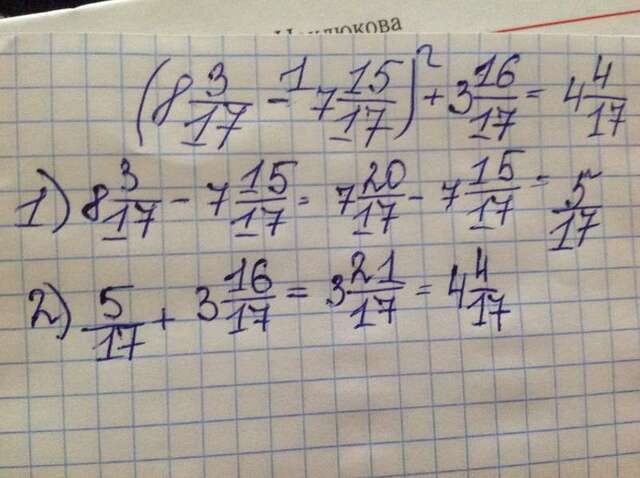 (8 3/17 -¹ 7 15/17) +² 3 16/17 = 4 4/17
1) 8 3/17 - 7 15/17 = 7 20/17 - 7 15/17 = 5/17
2) 5/17 + 3 16/17 = 3 21/17 = 4 4/17